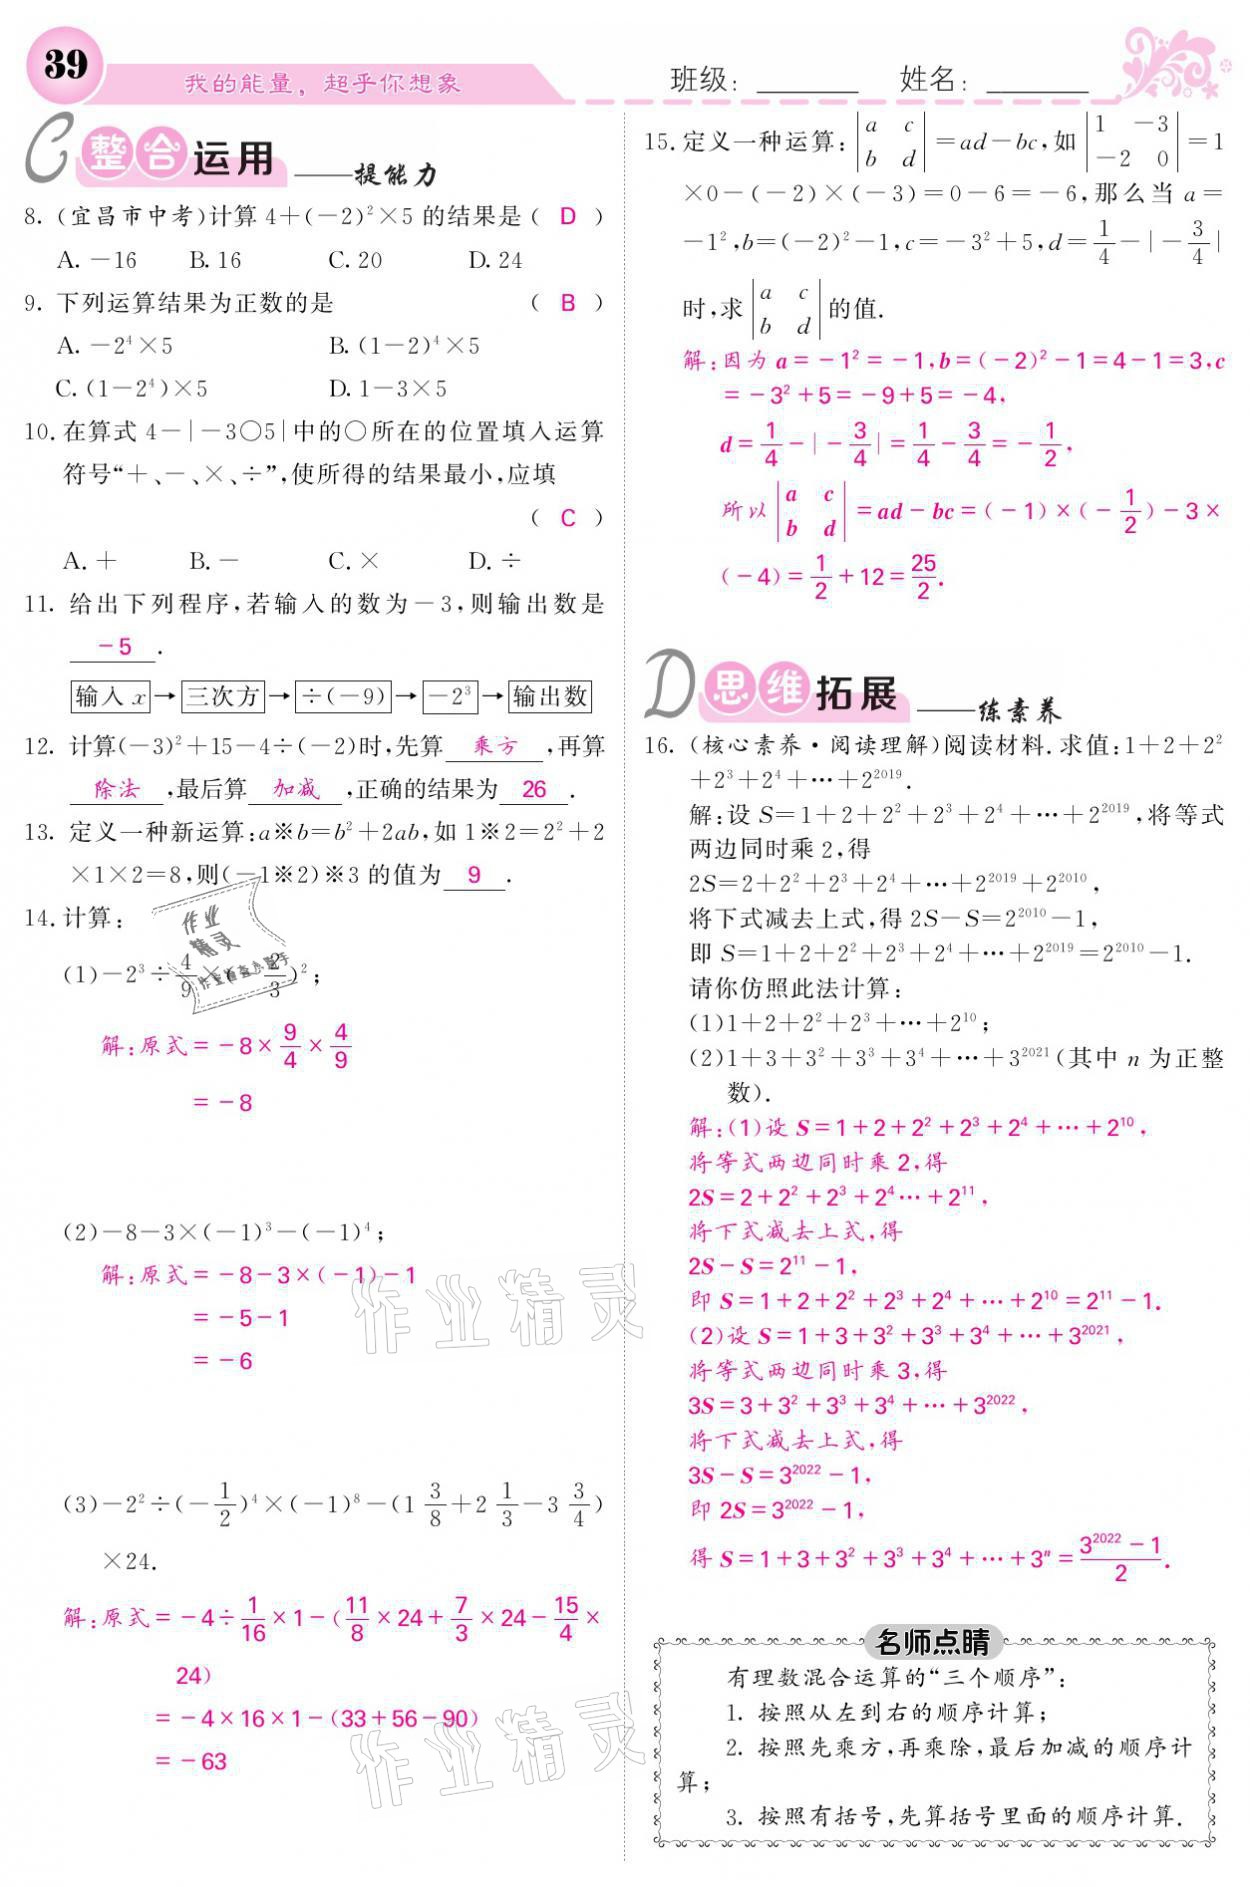 39
我的能量，超乎你想象
班级：
姓名：
C 整合运用 ——提能力
8. (宜昌市中考)计算 4＋(－2)²×5 的结果是( D )
A. －16 B. 16 C. 20 D. 24
9. 下列运算结果为正数的是 ( B )
A. －2⁴×5 B. (1－2)⁴×5
C. (1－2⁴)×5 D. 1－3×5
10. 在算式 4－|－3○5|中的○所在的位置填入运算
符号“＋、－、×、÷”,使所得的结果最小,应填
( C )
A. ＋ B. － C. × D. ÷
11. 给出下列程序,若输入的数为－3,则输出数是
－5 .
输入 x → 三次方 → ÷(－9) → －2³ → 输出数
12. 计算(－3)²＋15－4÷(－2)时,先算 乘方 ,再算
除法 ,最后算 加减 ,正确的结果为 26 .
13. 定义一种新运算:a※b=b²＋2ab,如 1※2=2²＋2
×1×2=8,则(－1※2)※3 的值为 9 .
14. 计算:
(1)－2³÷4/9×(－2/3)²;
解:原式=－8×9/4×4/9
=－8
(2)－8－3×(－1)³－(－1)⁴;
解:原式=－8－3×(－1)－1
=－5－1
=－6
(3)－2²÷(－1/2)⁴×(－1)⁸－(1 3/8＋2 1/3－3 3/4)
×24.
解:原式=－4÷1/16×1－(11/8×24＋7/3×24－15/4×
24)
=－4×16×1－(33＋56－90)
=－63
15. 定义一种运算: |a c; b d| =ad－bc,如 |1 －3; －2 0| =1
×0－(－2)×(－3)=0－6=－6,那么当 a=
－1²,b=(－2)²－1,c=－3²＋5,d=1/4－|－3/4|
时,求 |a c; b d| 的值.
解:因为 a=－1²=－1,b=(－2)²－1=4－1=3,c
=－3²＋5=－9＋5=－4,
d=1/4－|－3/4|=1/4－3/4=－1/2,
所以 |a c; b d| =ad－bc=(－1)×(－1/2)－3×
(－4)=1/2＋12=25/2.
D 思维拓展 ——练素养
16. (核心素养·阅读理解)阅读材料.求值:1＋2＋2²
＋2³＋2⁴＋…＋2²⁰¹⁹.
解:设 S=1＋2＋2²＋2³＋2⁴＋…＋2²⁰¹⁹,将等式
两边同时乘 2,得
2S=2＋2²＋2³＋2⁴＋…＋2²⁰¹⁹＋2²⁰¹⁰,
将下式减去上式,得 2S－S=2²⁰¹⁰－1,
即 S=1＋2＋2²＋2³＋2⁴＋…＋2²⁰¹⁹=2²⁰¹⁰－1.
请你仿照此法计算:
(1)1＋2＋2²＋2³＋…＋2¹⁰;
(2)1＋3＋3²＋3³＋3⁴＋…＋3²⁰²¹(其中 n 为正整
数).
解:(1)设 S=1＋2＋2²＋2³＋2⁴＋…＋2¹⁰,
将等式两边同时乘 2,得
2S=2＋2²＋2³＋2⁴…＋2¹¹,
将下式减去上式,得
2S－S=2¹¹－1,
即 S=1＋2＋2²＋2³＋2⁴＋…＋2¹⁰=2¹¹－1.
(2)设 S=1＋3＋3²＋3³＋3⁴＋…＋3²⁰²¹,
将等式两边同时乘 3,得
3S=3＋3²＋3³＋3⁴＋…＋3²⁰²²,
将下式减去上式,得
3S－S=3²⁰²²－1,
即 2S=3²⁰²²－1,
得 S=1＋3＋3²＋3³＋3⁴＋…＋3ⁿ=(3²⁰²²－1)/2.
名师点睛
有理数混合运算的“三个顺序”:
1. 按照从左到右的顺序计算;
2. 按照先乘方,再乘除,最后加减的顺序计
算;
3. 按照有括号,先算括号里面的顺序计算.
作业精灵
作业精灵
作业精灵